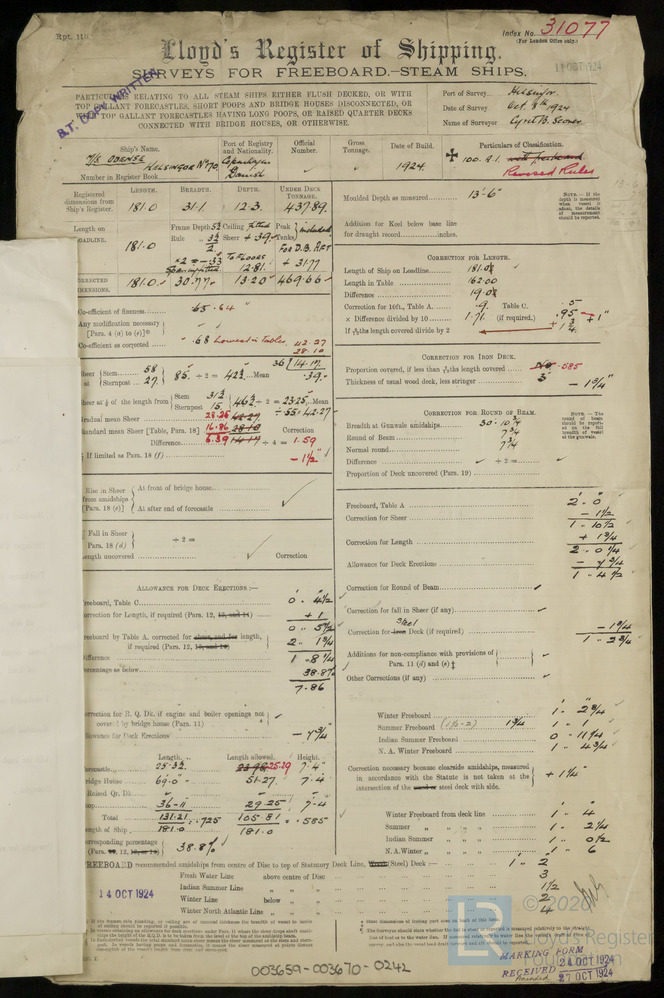 Rpt. 11
Index No. 31077
(For London Office only.)
Lloyd's Register of Shipping.
11 OCT 1924
SURVEYS FOR FREEBOARD.—STEAM SHIPS.
B.T. COPY WRITTEN
PARTICULARS RELATING TO ALL STEAM SHIPS EITHER FLUSH DECKED, OR WITH
TOP GALLANT FORECASTLES, SHORT POOPS AND BRIDGE HOUSES DISCONNECTED, OR
WITH TOP GALLANT FORECASTLES HAVING LONG POOPS, OR RAISED QUARTER DECKS
CONNECTED WITH BRIDGE HOUSES, OR OTHERWISE.
Port of Survey Helsingör
Date of Survey Oct. 8th 1924
Name of Surveyor
Ship's Name. Port of Registry and Nationality. Official Number. Gross Tonnage. Date of Build. Particulars of Classification.
M/S ODENSE
HELSINGÖR No 70 Copenhagen Danish 1924. 100. A.1.
Revised Rules
Number in Register Book
Registered dimensions from Ship's Register. LENGTH. BREADTH. DEPTH. UNDER DECK TONNAGE.
181.0 31.1. 12.3. 437.89.
Moulded Depth as measured 13'-6"
NOTE.—If the depth is measured when vessel is afloat, the details of measurement should be reported.
Addition for Keel below base line for draught record inches.
Length on LOADLINE. 181.0
Frame Depth 5½ Ceiling fitted Peak Tanks included
Rule 3½ Sheer + .39
2 TO FLOORS For D.B. AFT
×2 = .33 12.81. + 31.77
Sparring fitted
CORRECTED DIMENSIONS. 181.0 30.77 13.20 469.66
CORRECTION FOR LENGTH.
Length of Ship on Loadline 181.0
Length in Table 162.00
Difference 19.0
Correction for 10ft., Table A. .9 Table C. .5
× Difference divided by 10 1.71 (if required.) .95 + 1"
If 6/10ths length covered divide by 2 + 1¾
Co-efficient of fineness .65.64
Any modification necessary [Para. 4 (a) to (e)]
Co-efficient as corrected .68 Lowest in Tables. 42.27
28.10
36 | 14.17
.39
Sheer at Stem 58
Sternpost 27 } 85. ÷ 2 = 42½ Mean
CORRECTION FOR IRON DECK.
Proportion covered, if less than 7/10ths length covered .585
Thickness of usual wood deck, less stringer 3" − 1¾"
Sheer at ⅛ of the length from Stem 31½
Sternpost 15 } 46½ ÷ 2 = 23.25 Mean
Gradual mean Sheer 28.25 42.27 ÷ .55 = 42.27
Standard mean Sheer [Table, Para. 18] 16.86 28.10 Correction
Difference 6.39 14.17 ÷ 4 = 1.59
If limited as Para. 18 (f) − 1½"
CORRECTION FOR ROUND OF BEAM.
NOTE.—The round of beam should be reported on the full breadth of vessel at the gunwale.
Breadth at Gunwale amidships 30.10¾
Round of Beam 7¾
Normal round 7¾
Difference ÷ 2 =
Proportion of Deck uncovered (Para. 19)
Rise in Sheer from amidships [Para. 18 (e)] At front of bridge house
At after end of forecastle
Fall in Sheer Para. 18 (d) ÷ 2 =
Length uncovered Correction
Freeboard, Table A 2 - 0"
Correction for Sheer − 1½
1 - 10½
Correction for Length + 1¾
2 - 0¼
Allowance for Deck Erections − 7¾
1 - 4½
Correction for Round of Beam
Correction for fall in Sheer (if any)
Steel
Correction for Iron Deck (if required) − 1¾
1 - 2¾
Additions for non-compliance with provisions of Para. 11 (d) and (e)
Other Corrections (if any)
ALLOWANCE FOR DECK ERECTIONS:—
Freeboard, Table C. 0 - 4½
Correction for Length, if required (Para. 12, 13, and 14) + 1
0 - 5½
Freeboard by Table A. corrected for sheer, and for length, if required (Para. 12, 13, and 14) 2 - 1¾
Difference 1 - 8¼
Percentage as below 38.8%
7.86
Correction for R. Q. Dk. if engine and boiler openings not covered by bridge house (Para. 11)
Allowance for Deck Erections − 7¾
Winter Freeboard 1 - 2¾
Summer Freeboard (1½-2) 1¾ 1 - 1
Indian Summer Freeboard 0 - 11¼
N. A. Winter Freeboard 1 - 4¾
Correction necessary because clearside amidships, measured in accordance with the Statute is not taken at the intersection of the wood or steel deck with side. + 1¼"
Length. Length allowed. Height.
Forecastle 25.3½ 25.29 7'-4"
Bridge House 69.0 51.27 7.4
Raised Qr. Dk.
Poop 36-11 29.25 7-4
Total 131.21 = .725 105.81 = .585
Length of Ship 181.0 181.0
Corresponding percentage (Para. 12) 38.8%
Winter Freeboard from deck line 1 - 4
Summer „ „ „ „ 1 - 2¼
Indian „ „ „ „ 1 - 0½
N. A. Winter „ „ „ „ 1 - 6
FREEBOARD recommended amidships from centre of Disc to top of Statutory Deck Line, Wood (Steel) Deck— 1 - 2
Fresh Water Line above centre of Disc 3
Indian Summer Line „ „ 1½
Winter Line below „ 2
Winter North Atlantic Line „ „ 4
14 OCT 1924
© 2020
LR
Lloyd's Register
Foundation
MARKING FORM
RECEIVED 24 OCT 1924
27 OCT 1924
003659-003670-0242